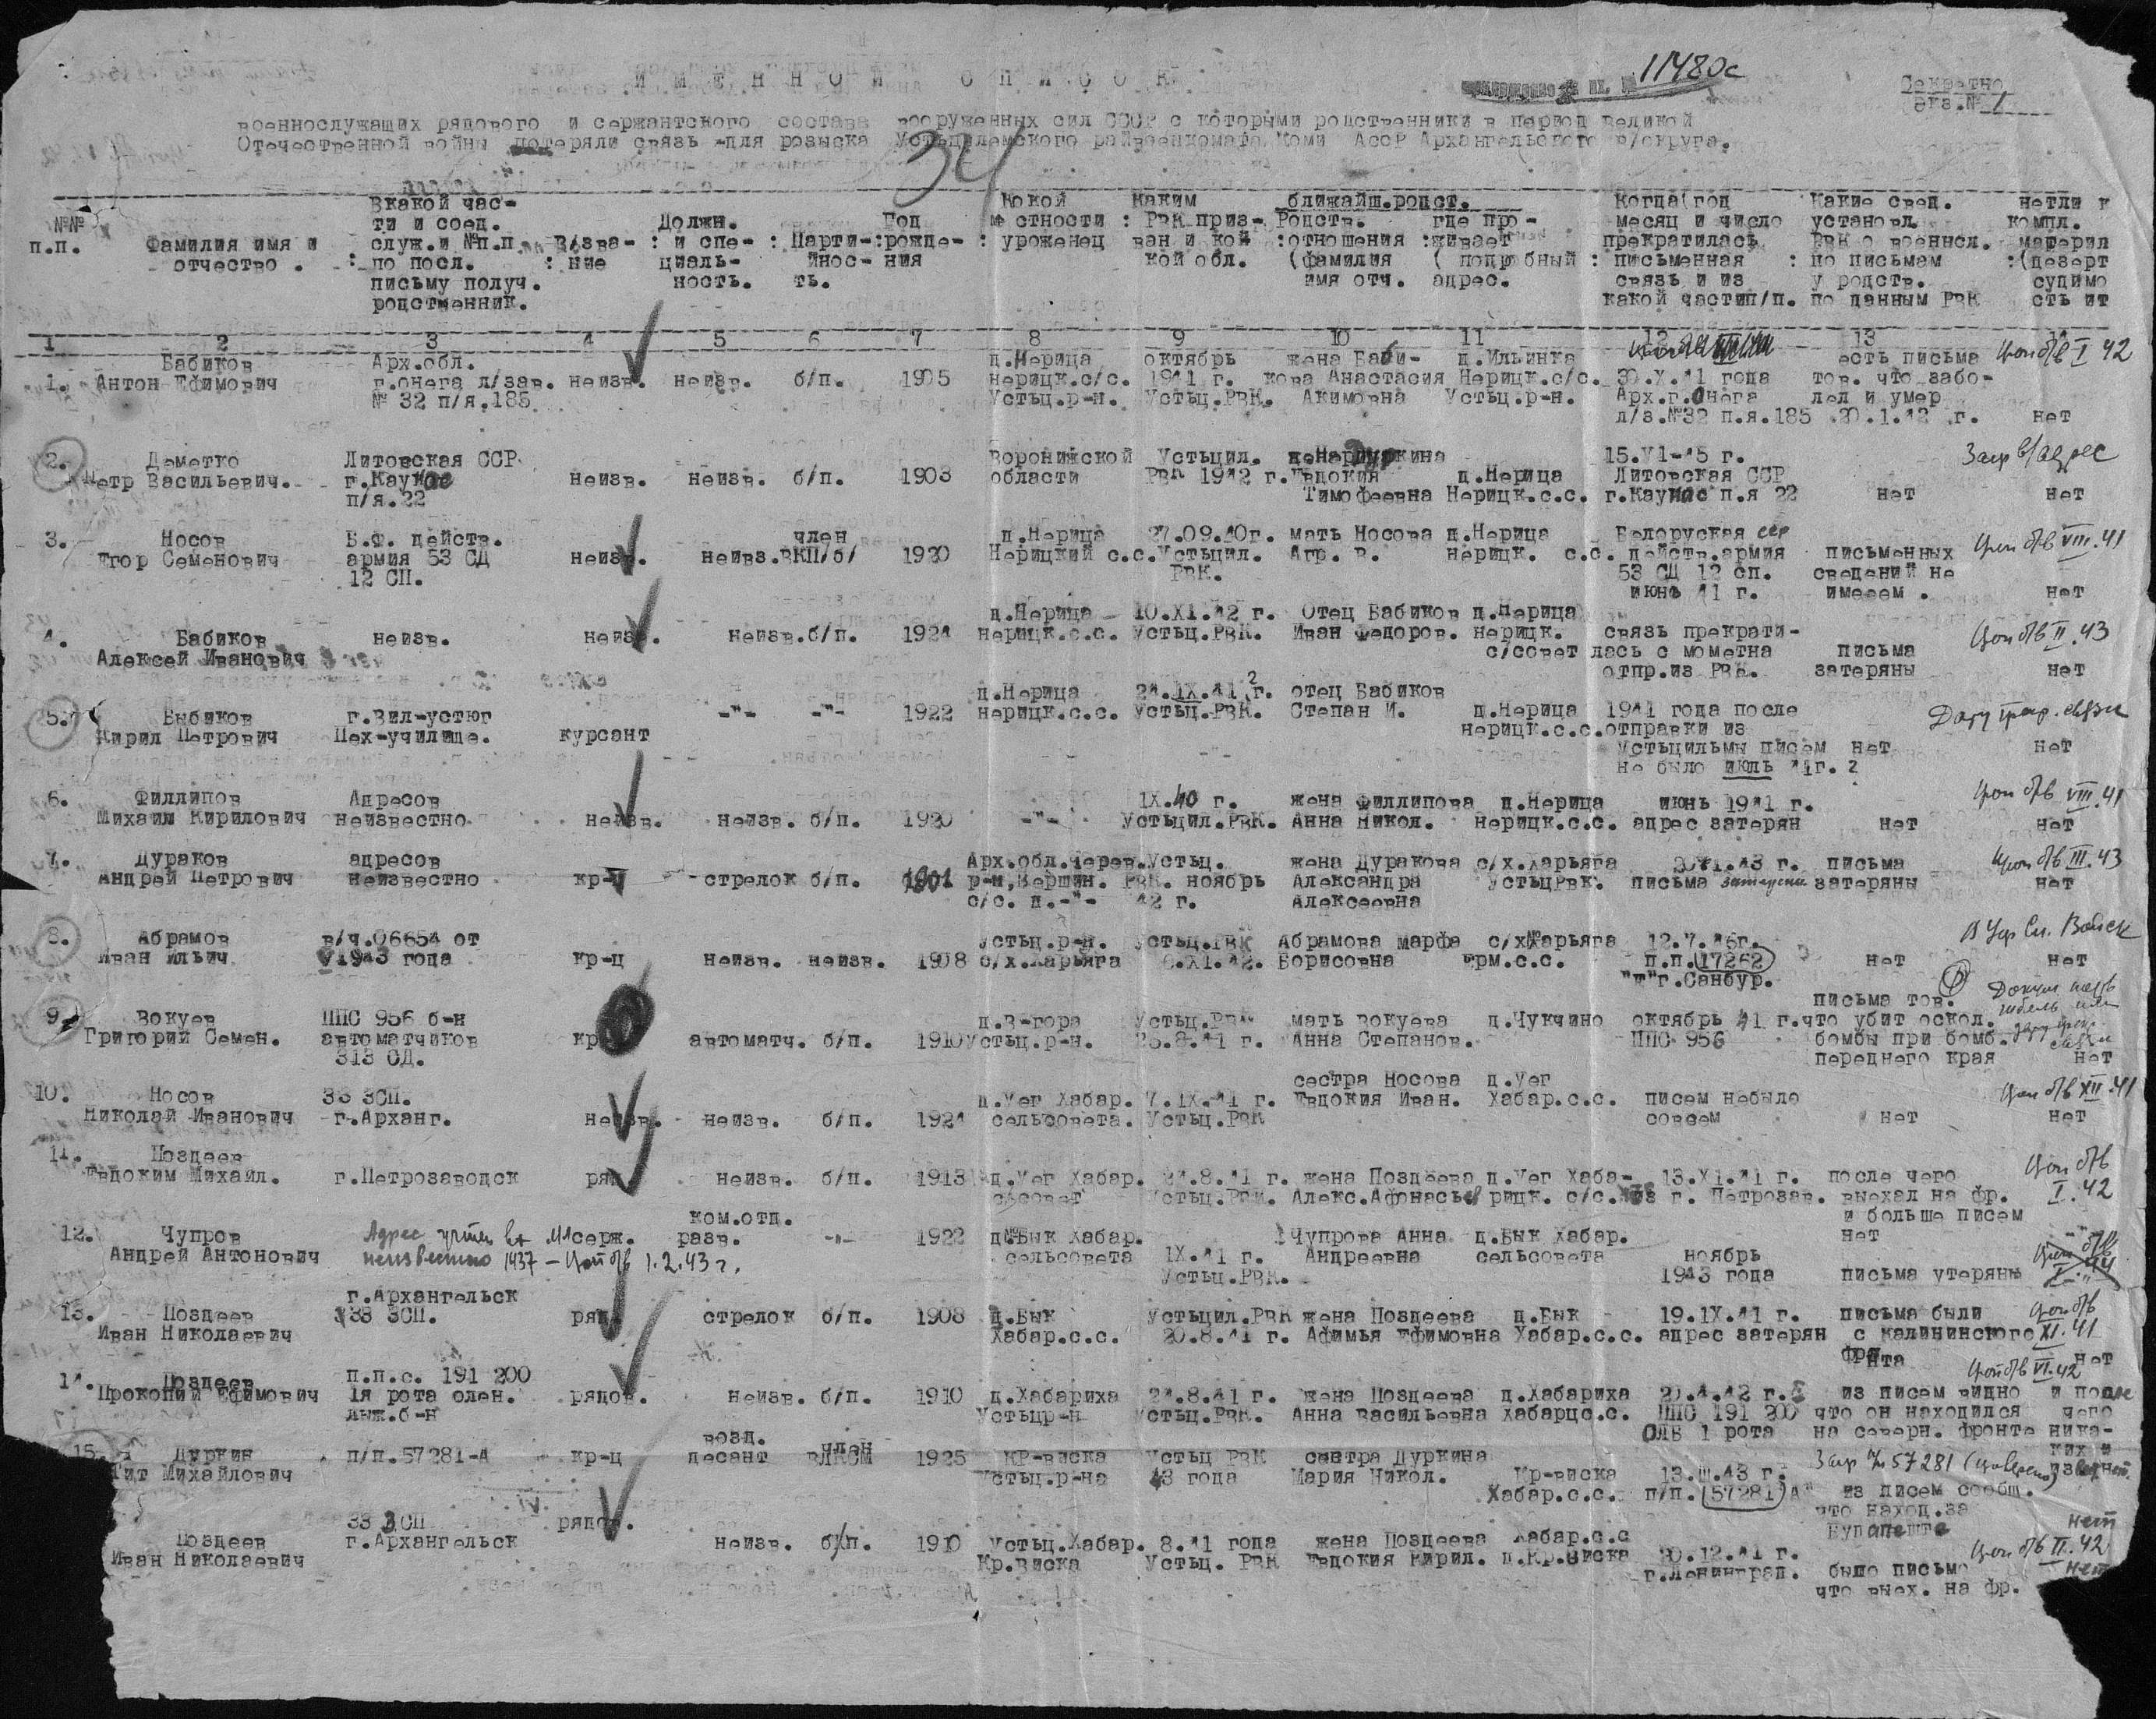 ИМЕННОЙ СПИСОК
11480с
Секретно
Экз.№ 1
военнослужащих рядового и сержантского состава вооруженных сил СССР с которыми родственники в период Великой
Отечественной войны потеряли связь -для розыска Устьцилемского райвоенкомата Коми АссР Архангельского в/округа.
34
№№ п.п.
Фамилия имя и отчество .
Вкакой части и соед. служ.и №п.п по посл. письму получ. родственник.
В/зва-ние
Должн. и специаль-ность.
Парти-йнос-ть.
Год рожде-ния
Какой местности уроженец
Каким РВК приз-ван и кой кой обл.
ближайш.родст.
Родств. отношения (фамилия имя отч.
где про-живает ( подробный адрес.
Когда(год месяц и число прекратилась письменная связь и из какой частип/п.
Какие свед. установл. РВК о военносл. по письмам у родств. по данным РВК
нетли к компл. материл (дезерт судимо сть ит
1 2 3 4 5 6 7 8 9 10 11 12 13
Бабиков Арх.обл. д.Нерица октябрь жена Баби- д.Ильинка есть письма Проп б/в I 42
1. Антон Ефимович г.онега л/зав. неизв. неизв. б/п. 1905 нерицк.с/с. 1941 г. кова Анастасия Нерицк.с/с. 30.X.41 года тов. что забо-
№ 32 п/я.185 Устьц.р-н. Устьц.РВК. Акимовна Устьц.р-н. Арх.г.Онега лел и умер
л/з.№32 п.я.185 20.1.42 г. нет
2. Деметко Литовская ССР Воронижской Устьцил. Дуркина 15.VI-45 г. Запр в/адрес
Петр Васильевич. г.Каунас неизв. неизв. б/п. 1903 области РВК 1942 г. Евдокия д.Нерица Литовская ССР
п/я.22 Тимофеевна Нерицк.с.с. г.Каунас п.я 22 нет нет
3. Носов Б.Ф. действ. член д.Нерица 27.09.40г. мать Носова д.Нерица Белоруская сср Проп б/в VIII.41
Егор Семенович армия 53 СД неизв. неивз.ВКП/б/ 1920 Нерицкий с.с.Устьцил. Агр. В. нерицк. с.с. действ.армия письменных
12 СП. РВК. 53 СД 12 сп. сведений не
июнь 41 г. имеем . нет
д.Нерица 10.XI.42 г. Отец Бабиков д.Нерица
4. Бабиков неизв. неизв. неизв.б/п. 1924 нерицк.с.с. Устьц.РВК. Иван Федоров. нерицк. связь прекрати- Проп б/в II.43
Алексей Иванович с/совет лась с мометна письма
отпр.из РВК. затеряны нет
д.Нерица 24.IX.41 2г. отец Бабиков
5. Быбиков г.Вил-устюг -"- -"- 1922 нерицк.с.с. Устьц.РВК. Степан И. д.Нерица 1941 года после Дату прекр. связи
Кирил Петрович Пех-училище. курсант нерицк.с.с.отправки из
Устьцильмы писем нет нет
не было июль 41г. 2
6. Филлипов Адресов IX.40 г. жена Филлипова д.Нерица июнь 1941 г. Проп б/в VIII.41
Михаил Кирилович неизвестно неизв. неизв. б/п. 1920 -"- Устьцил.РВК. Анна Никол. нерицк.с.с. адрес затерян нет нет
7. Дураков адресов Арх.обл.Черев.Устьц. жена Дуракова с/х.Харьяга 20.1.43 г. письма Проп б/в III.43
Андрей Петрович неизвестно кр-ц стрелок б/п. 1901 р-н.Вершин. РВК. ноябрь Александра УстьцРвк. письма затеряны затеряны нет
с/с. д.-"- 42 г. Алексеевна
8. Абрамов в/ч.06654 от Устьц.р-н. Устьц.РВК Абрамова марфа с/хХарьяга 12.7.46г. В Упр Сп. Войск
Иван Ильич 1943 года кр-ц неизв. неизв. 1908 с/х.Харьяга 6.XI.42. Борисовна Ерм.с.с. п.п.17262 нет нет
"т"г.Санбур.
письма тов.
9. Вокуев ППС 956 б-н д.В-гора Устьц.РВК мать Вокуева д.Чукчино октябрь 41 г.что убит оскол.
Григорий Семен. автоматчиков кр автоматч. б/п. 1910 Устьц.р-н. 25.8.41 г. Анна Степанов. ППС 956 бомбы при бомб.
313 СД. переднего края нет
сестра Носова д.Уег
10. Носов 33 ЗСП. д.Уег Хабар. 7.IX.41 г. Евдокия Иван. Хабар.с.с. писем небыло Проп б/в XII.41
Николай Иванович г.Арханг. неизв. неизв. б/п. 1924 сельсовета. Устьц.РВК совсем нет нет
11. Поздеев Проп б/в
Евдоким Михайл. г.Петрозаводск ряд. неизв. б/п. 1913 д.Уег Хабар. 24.8.41 г. жена Поздеева д.Уег Хаба- 13.XI.41 г. после чего I.42
с/совет Устьц.РВК. Алекс.Афонасьев рицк. с/с. из г. Петрозав. выехал на фр.
и больше писем
ком.отд. нет
12. Чупров Адрес мл серж. разв. -"- 1922 д.Бык Хабар. Чупрова Анна д.Бык Хабар.
Андрей Антонович неизвестно 1437 – Проп б/в 1.2.43 г. сельсовета IX.41 г. Андреевна сельсовета ноябрь
Устьц.РВК. 1943 года письма утеряны
г.Архангельск
13. Поздеев 33 ЗСП. ряд. стрелок б/п. 1908 д.Бык Устьцил.РВК жена Поздеева д.Бык 19.IX.41 г. письма были Проп б/в
Иван Николаевич Хабар.с.с. 20.8.41 г. Афимья Ефимовна Хабар.с.с. адрес затерян с калининского XI.41
фронта нет
14. Поздеев п.п.с. 191 200 Проп б/в VI.42
Прокопий Ефимович 1я рота олен. рядов. неизв. б/п. 1910 д.Хабариха 24.8.41 г. жена Поздеева д.Хабариха 20.4.42 г. из писем видно и после
лыж.б-н Устьцр-н Устьц.РВК. Анна Васильевна Хабарцс.с. ППС 191 200 что он находился чего
ОЛБ 1 рота на северн. фронте ника-
ких и
возд. член
15. Дуркин п/п.57281-А кр-ц десант ВЛКСМ 1925 КР-виска Устьц РВК сестра Дуркина Запр 57281
Тит Михайлович Устьц.р-на 43 года Мария Никол. Кр-виска 13.III.43 г.
Хабар.с.с. п/п.57281 А" из писем сообщ.
что наход.за
Будапеште нет
33 ЗСП рядов.
Поздеев г.Архангельск неизв. б/п. 1910 устьц.Хабар. 8.41 года жена Поздеева Хабар.с.с Проп б/в II.42
Иван Николаевич Кр.Виска Устьц. РВК Евдокия Кирил. д.Кр.Виска 20.12.41 г.
г.Ленинград. было письмо нет
что выех. на фр.